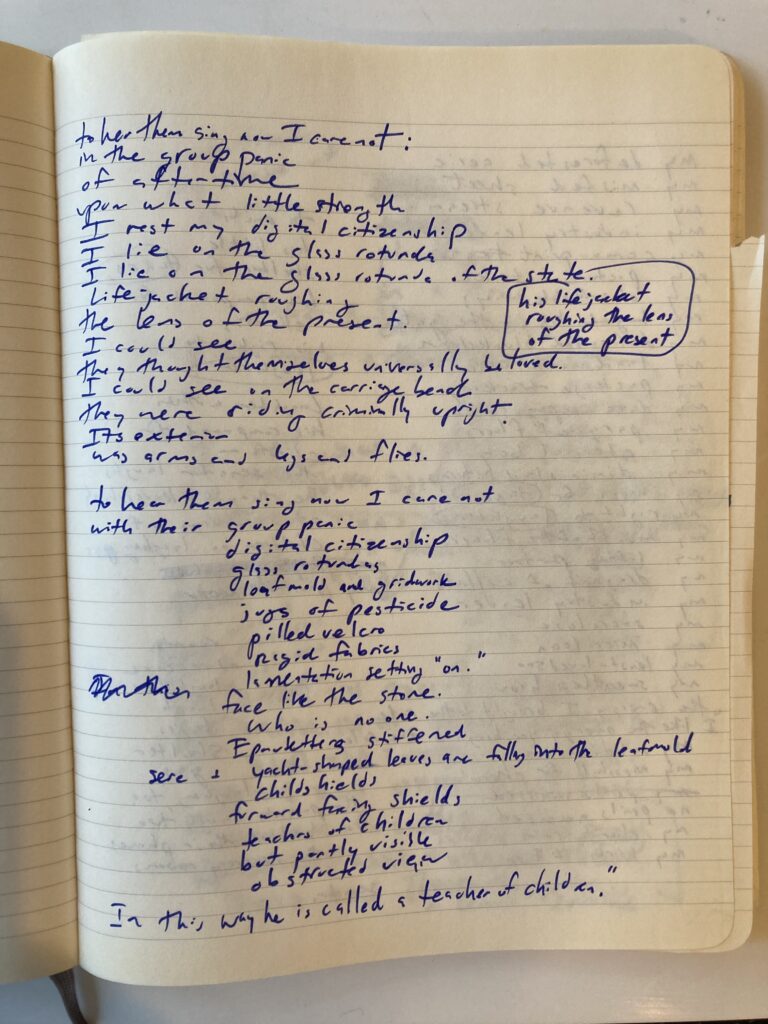 to her them sing now I care not:
in the group panic
of aftertime
upon what little strength
I rest my digital citizenship
I lie on the glass rotunda
I lie on the glass rotunda of the state.
Life-jacket roughing
the lens of the present.
his life jacket
roughing the lens
of the present
I could see
they thought themselves universally beloved.
I could see on the carriage bench
they were riding criminally upright.
Its exterior
was arms and legs and flies.
to hear them sing now I care not
with their group panic
digital citizenship
glass rotundas
leafmold and gridwork
jugs of pesticide
pilled velcro
rigid fabrics
lamentation setting "on."
face like the stone.
who is no one.
stiffened
sere &
yacht-shaped leaves are falling into the leafmold
childshields
forward facing shields
teachers of children
but partly visible
obstructed view
In this way he is called a teacher of children."